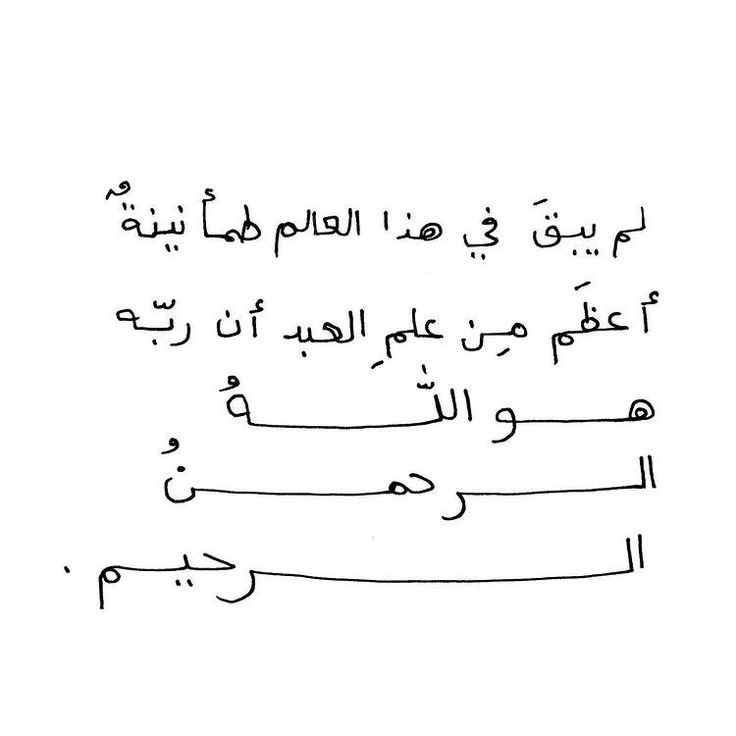 لم يبقَ في هذا العالم طمأنينةٌ
أعظَم مِن علمِ العبد أن ربّه
هـــو اللّـــهُ
الـــرحمـــنُ
الـــرحيـم .